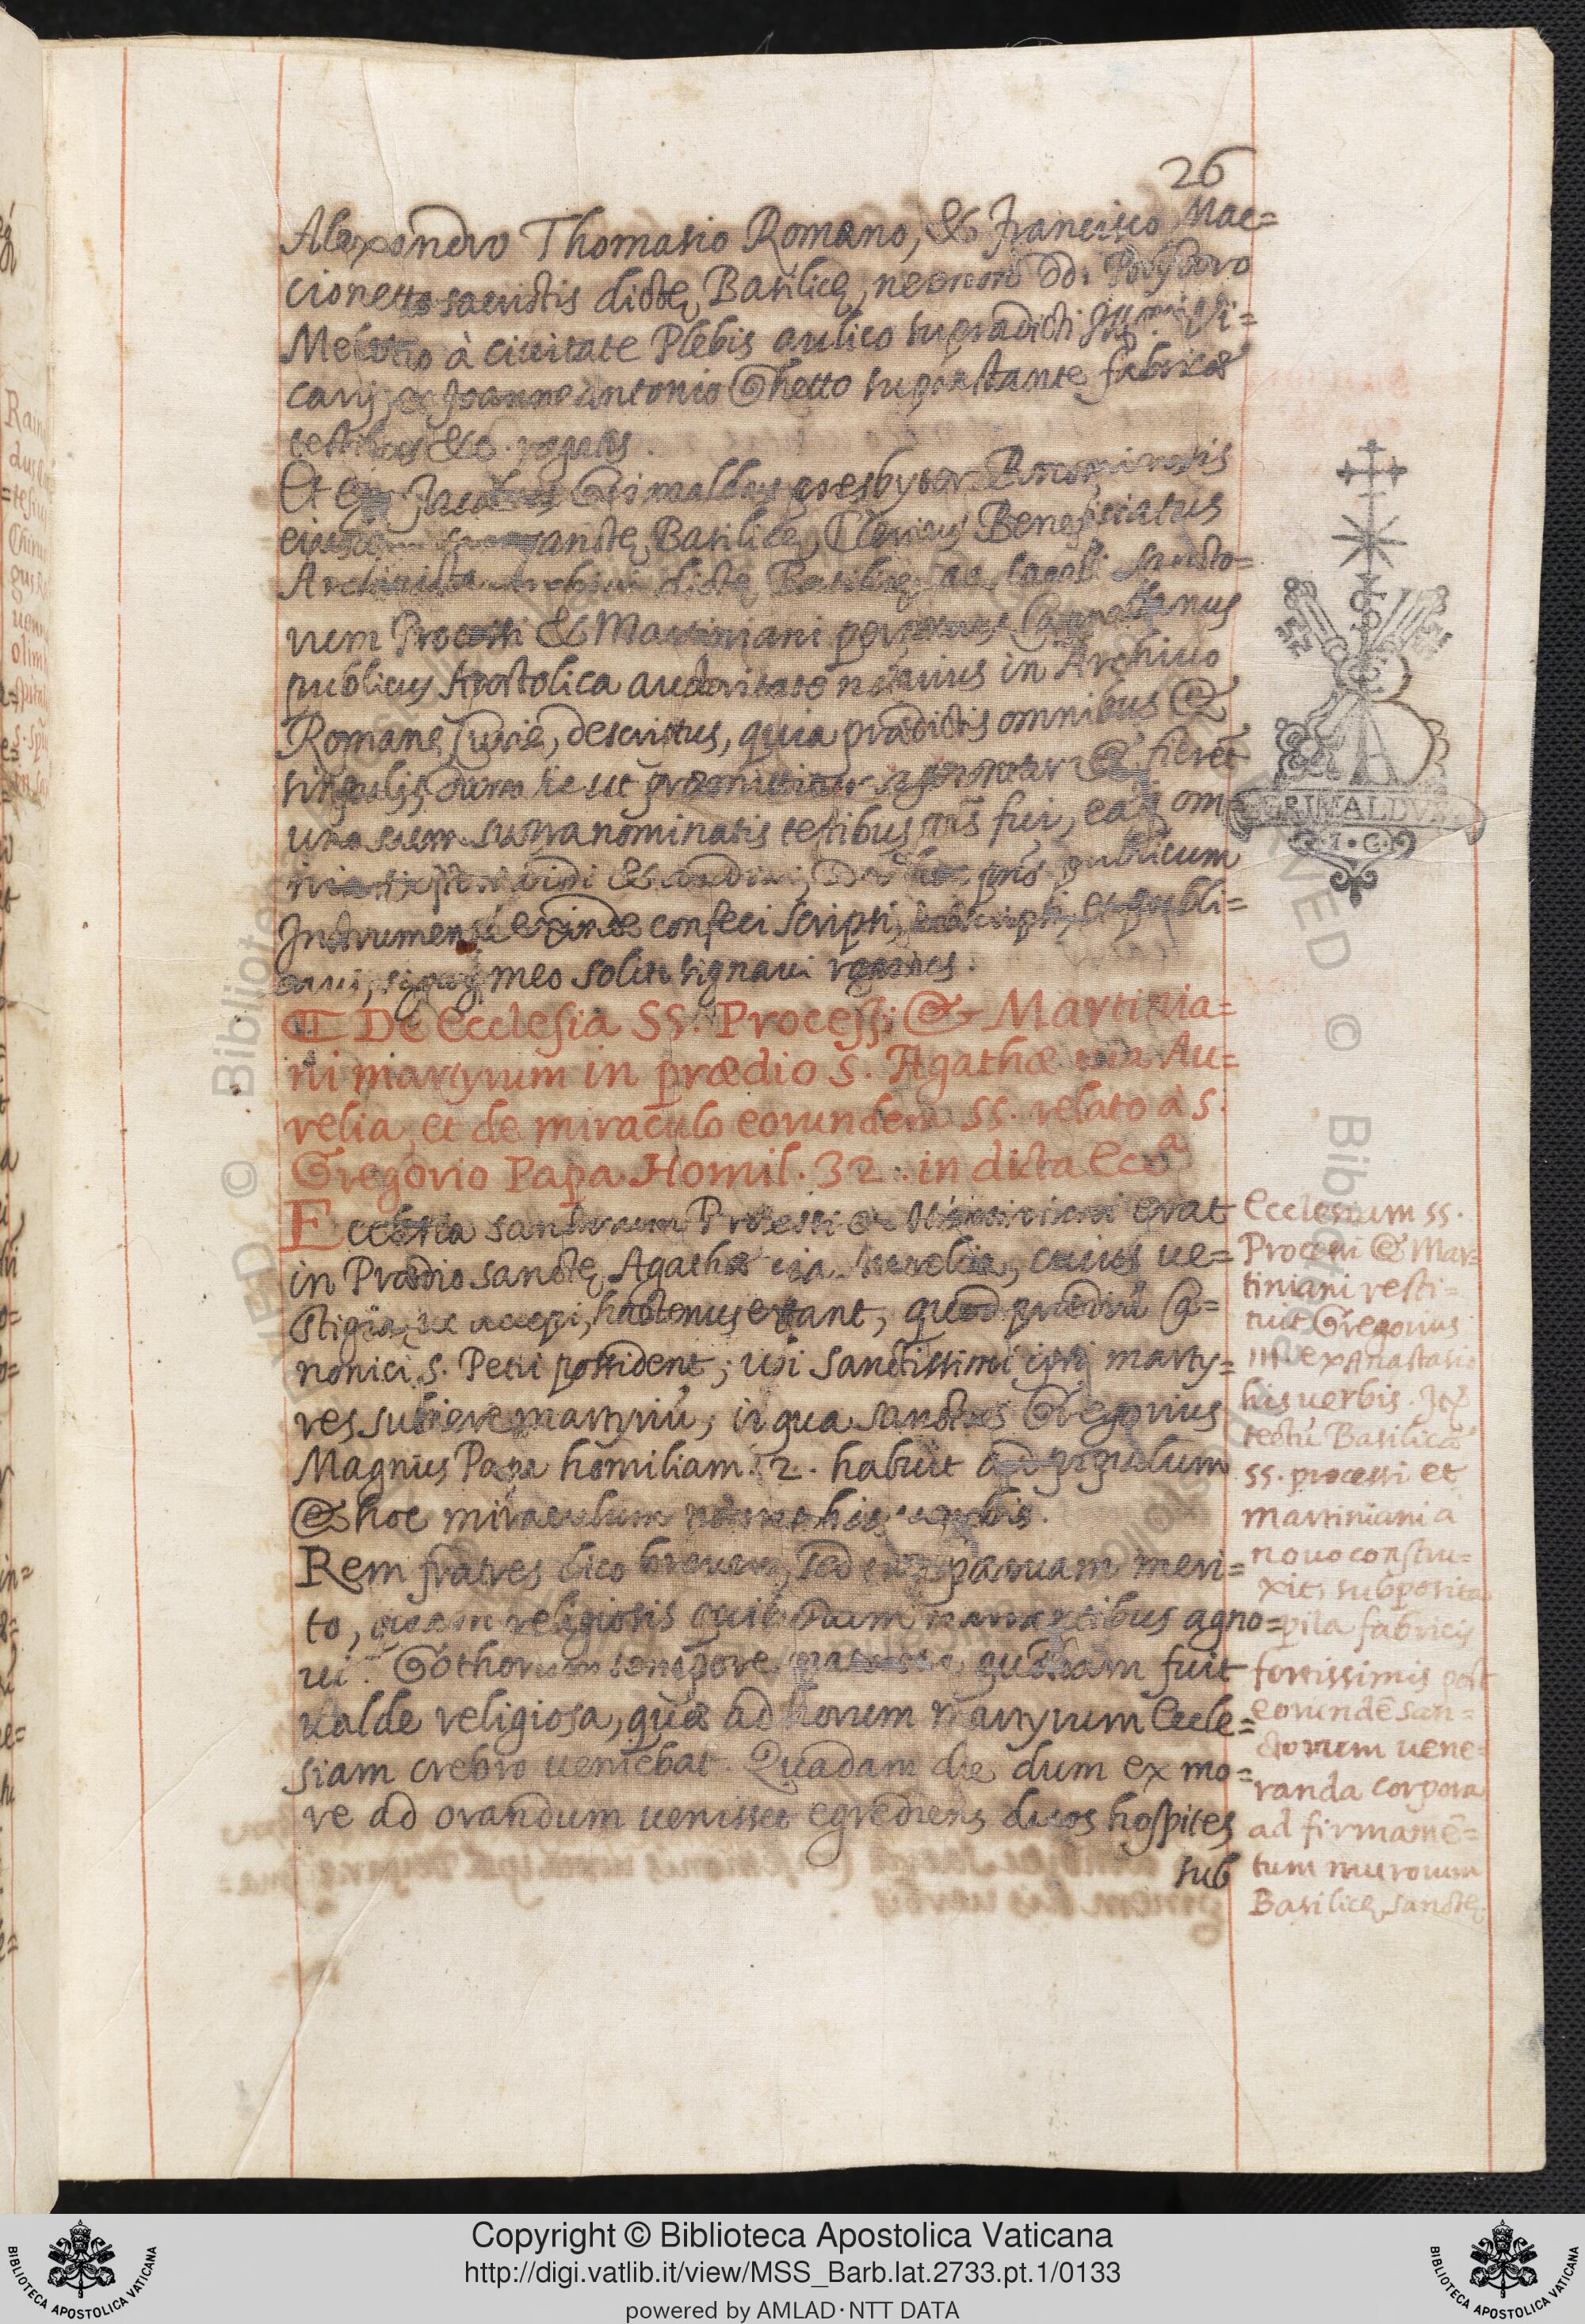 26
Alexandro Thomasio Romano, & Francisco Mac=
cionetto sacristis dictę Basilicę, necnon DD.
à ciuitate Plebis aulico supradicti Illmi Vi=
carij, & Joanne antonio Ghetto suprastante fabricæ
testibus &c. rogatis.
Et ego Jacobus Grimaldus presbyter Bononiensis
eiusdem sacrosanctę Basilicę Clericus Beneficiatus
Archiuista dictę Basilicę ac sacelli sancto=
rum Processi & Martiniani perpetuus Capellanus
publicus Apostolica auctoritate notarius in Archiuo
Romanę Curię descriptus, quia prædictis omnibus &
singulis, dum sic ut præmittitur agerentur & fierēt
una cum supranominatis testibus pn̄s fui, eaq; om=
nia sic fieri uidi & audiui, pn̄s publicum
Instrumentū exinde confeci scripsi, subscripsi, et publi=
caui, signoq; meo solito signaui rogatus.
De Ecclesia SS. Processi & Martinia=
ni martyrum in prædio S. Agathæ via Au=
relia, et de miraculo eorundem SS. relato à S.
Gregorio Papa Homil. 32. in dicta eccᵃ
Ecclesia sanctorum Processi & Martiniani erat
in Prædio sanctę Agathæ uia Aurelia, cuius ue=
stigia, ut accepi, hactenus extant, quod prædiū Ca=
nonici S. Petri possident; ubi sanctissimi isti marty=
res subiere martyriū, in qua sanctus Gregorius
Magnus Papa homiliam 32. habuit ad populum
& hoc miraculum his uerbis.
Rem fratres dico breuem, sed non paruam meri=
to, quam religiosis quibusdam narrantibus agno=
ui. Gothorum tempore matrona quædam fuit
ualde religiosa, quæ ad horum martyrum Eccle=
siam crebro ueniebat. Quadam die dum ex mo=
re ad orandum uenisset egrediens duos hospites
sub
GRIMALDVS
I. C.
Ecclesiam SS.
Processi & Mar=
tiniani resti=
tuit Gregorius
III ex Anastasio
his uerbis. Itē
tectū Basilicæ
SS. processi et
martiniani a
nouo constru=
xit, subposita
pila fabricis
fortissimis post
eorundē san=
ctorum uene=
randa corpora
ad firmamē=
tum murorum
Basilicę sanctę
Copyright © Biblioteca Apostolica Vaticana
http://digi.vatlib.it/view/MSS_Barb.lat.2733.pt.1/0133
powered by AMLAD·NTT DATA
BIBLIOTECA APOSTOLICA VATICANA
BIBLIOTECA APOSTOLICA VATICANA